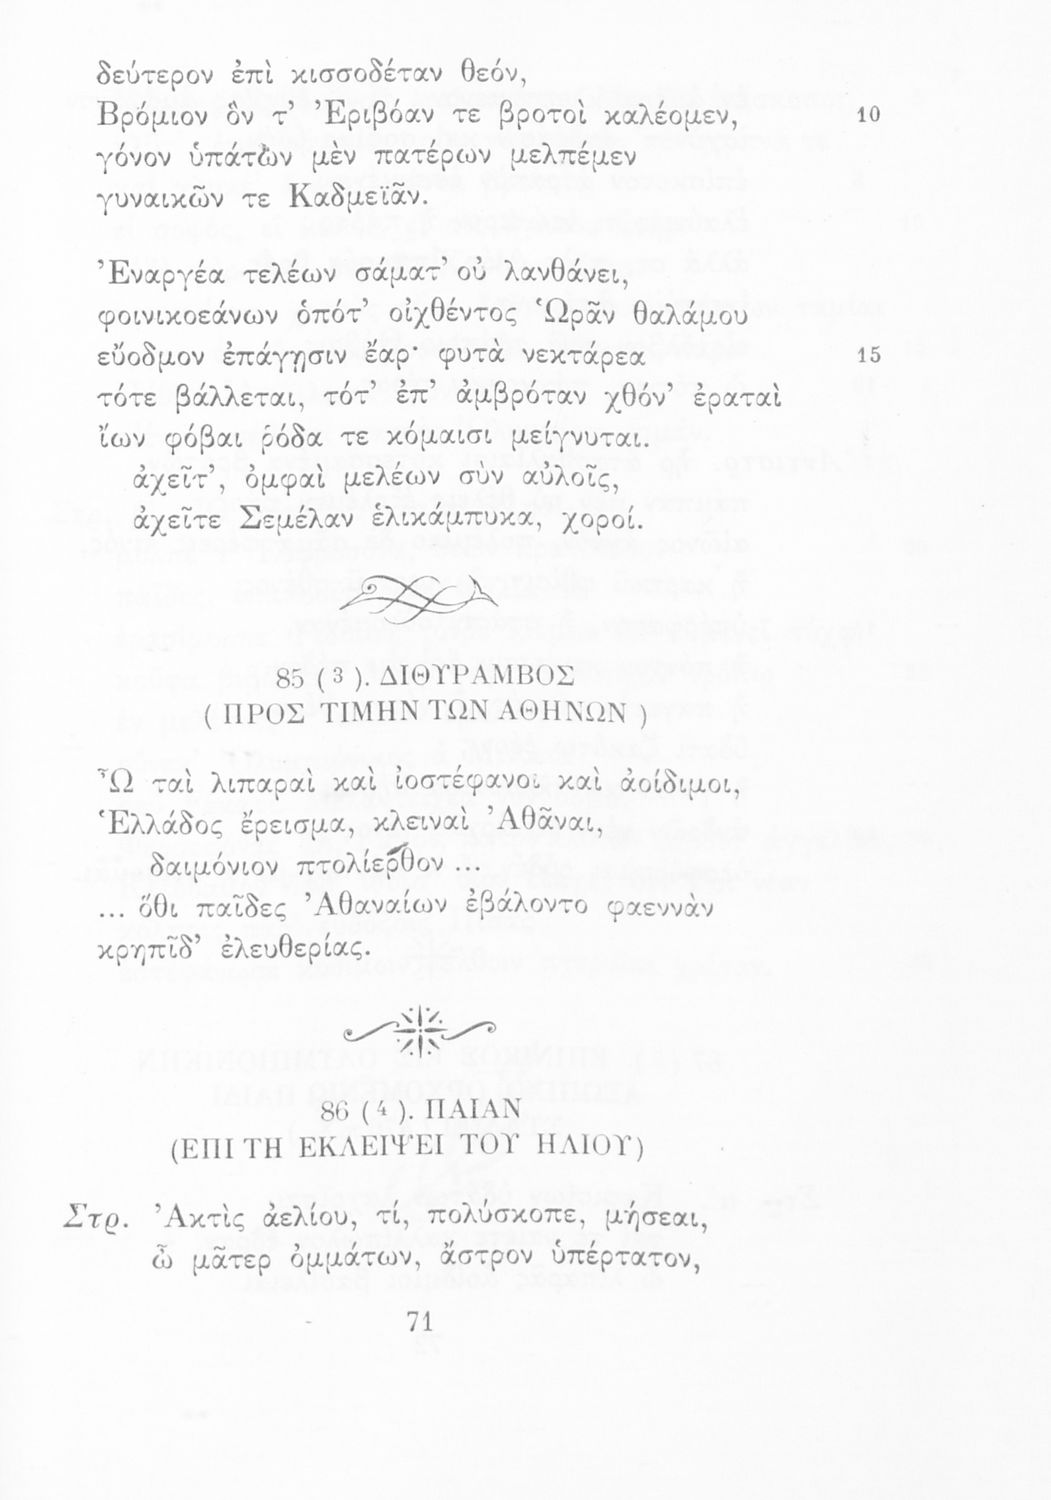 δεύτερον ἐπὶ κισσοδέταν θεόν,
Βρόμιον ὃν τ’ Ἐριβόαν τε βροτοὶ καλέομεν, 10
γόνον ὑπάτων μὲν πατέρων μελπέμεν
γυναικῶν τε Καδμεϊᾶν.
Ἐναργέα τελέων σάματ’ οὐ λανθάνει,
φοινικοεάνων ὁπότ’ οἰχθέντος Ὡρᾶν θαλάμου
εὔοδμον ἐπάγῃσιν ἔαρ· φυτὰ νεκτάρεα 15
τότε βάλλεται, τότ’ ἐπ’ ἀμβρόταν χθόν’ ἐραταὶ
ἴων φόβαι ῥόδα τε κόμαισι μείγνυται.
ἀχεῖτ’, ὀμφαὶ μελέων σὺν αὐλοῖς,
ἀχεῖτε Σεμέλαν ἑλικάμπυκα, χοροί.
85 (3). ΔΙΘΥΡΑΜΒΟΣ
(ΠΡΟΣ ΤΙΜΗΝ ΤΩΝ ΑΘΗΝΩΝ)
Ὦ ταὶ λιπαραὶ καὶ ἰοστέφανοι καὶ ἀοίδιμοι,
Ἑλλάδος ἔρεισμα, κλειναὶ Ἀθᾶναι,
δαιμόνιον πτολίεθρον ...
... ὅθι παῖδες Ἀθαναίων ἐβάλοντο φαεννὰν
κρηπῖδ’ ἐλευθερίας.
86 (4). ΠΑΙΑΝ
(ΕΠΙ ΤΗ ΕΚΛΕΙΨΕΙ ΤΟΥ ΗΛΙΟΥ)
Στρ. Ἀκτὶς ἀελίου, τί, πολύσκοπε, μήσεαι,
ὦ μᾶτερ ὀμμάτων, ἄστρον ὑπέρτατον,
71